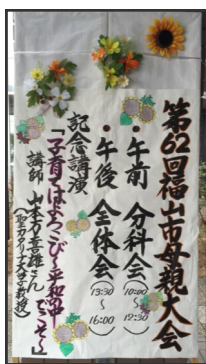 第62回福山市母親大会
・午前 分科会(10:00～12:30)
・午後 全体会(13:30～16:00)
記念講演
「子育てはよろこび!平和の中でこそ～」
講師 山本万喜雄さん
(聖カタリナ大学教授)